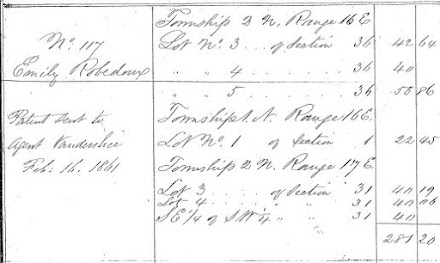 Township 2 N. Range 16 E
No. 117 Lot No. 3 of Section 36 42 64
Emily Robedoux " " 4 36 40
" " 5 36 55 86
Patent sent to Township 1. N. Range 16 E.
Agent Vanderslice Lot No. 1 of Section 1 22 45
Feb: 16. 1861 Township 2 N. Range 17 E.
Lot 3 of Section 31 40 19
Lot 4 " " 31 40 06
S E 1/4 of S W 1/4 " " 31 40
281 20